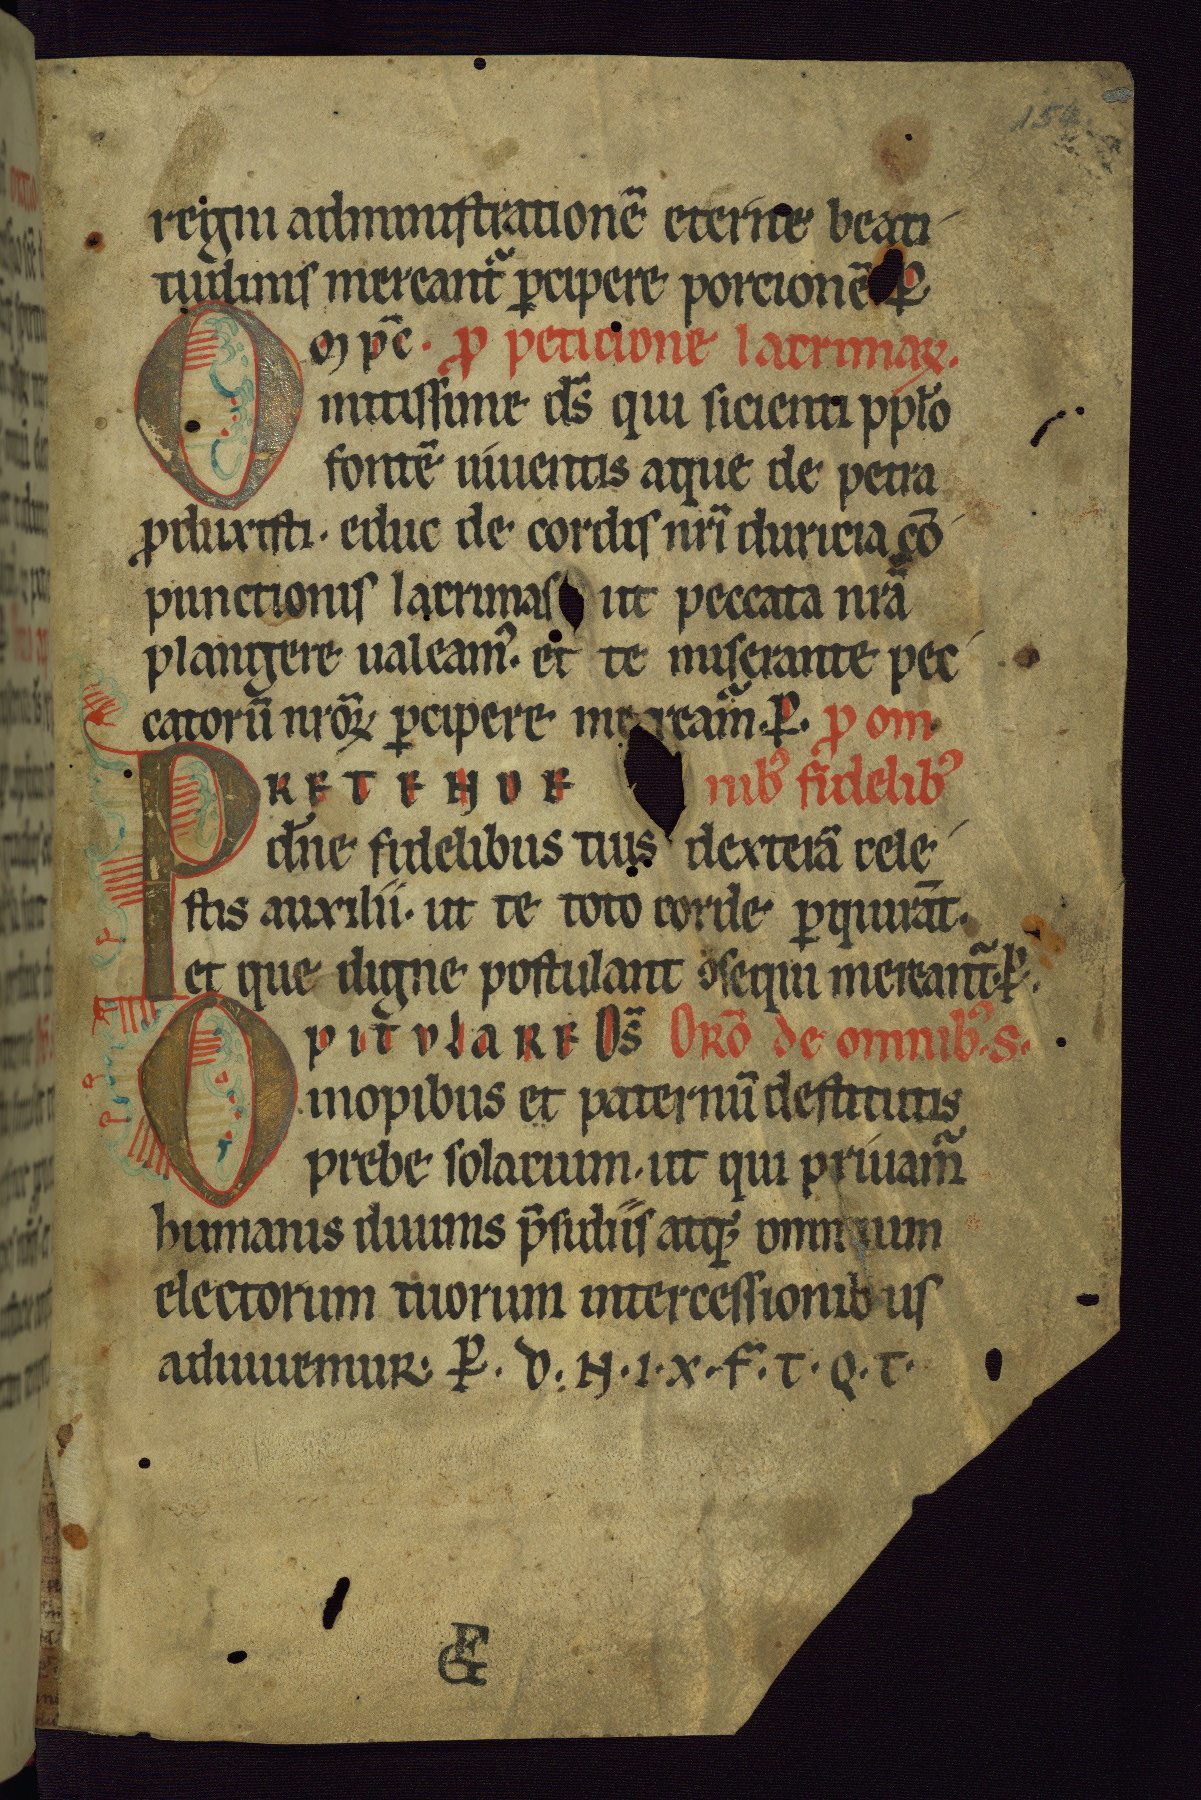 154
regni administrationē eterne beati
tudinis mereant᷑ ꝑcipere porcionē ꝑ
O m̄ pc̄. ꝓ peticione lacrimaꝝ.
mitissime ds̄ qui sicienti ppl̄o
fontē uiuentis aque de petra
ꝓduxisti. educ de cordis nr̄i duricia cō
punctionis lacrimas ut peccata nr̄a
plangere ualeamꝰ. et te miserante pec
catorū nr̄oꝝ ꝑcipere meream᷑. ꝑ. ꝓ om
P RETENDE nibꝰ fidelibꝰ
dn̄e fidelibus tuis dexterā cele
stis auxilii. ut te toto corde ꝑquirāt.
et que digne postulant ꝯsequi mereant᷑. ꝑ.
O PITULARE Ds̄ Orō de omnibꝰ. S.
inopibus et paternū destitutis
prebe solacium. ut qui priuam᷑
humanis duums p̄sidiis atqꝫ omnium
electorum tuorum intercessionibus
adiuuemur. ꝑ. D. N. I. X. F. T. Q. T.